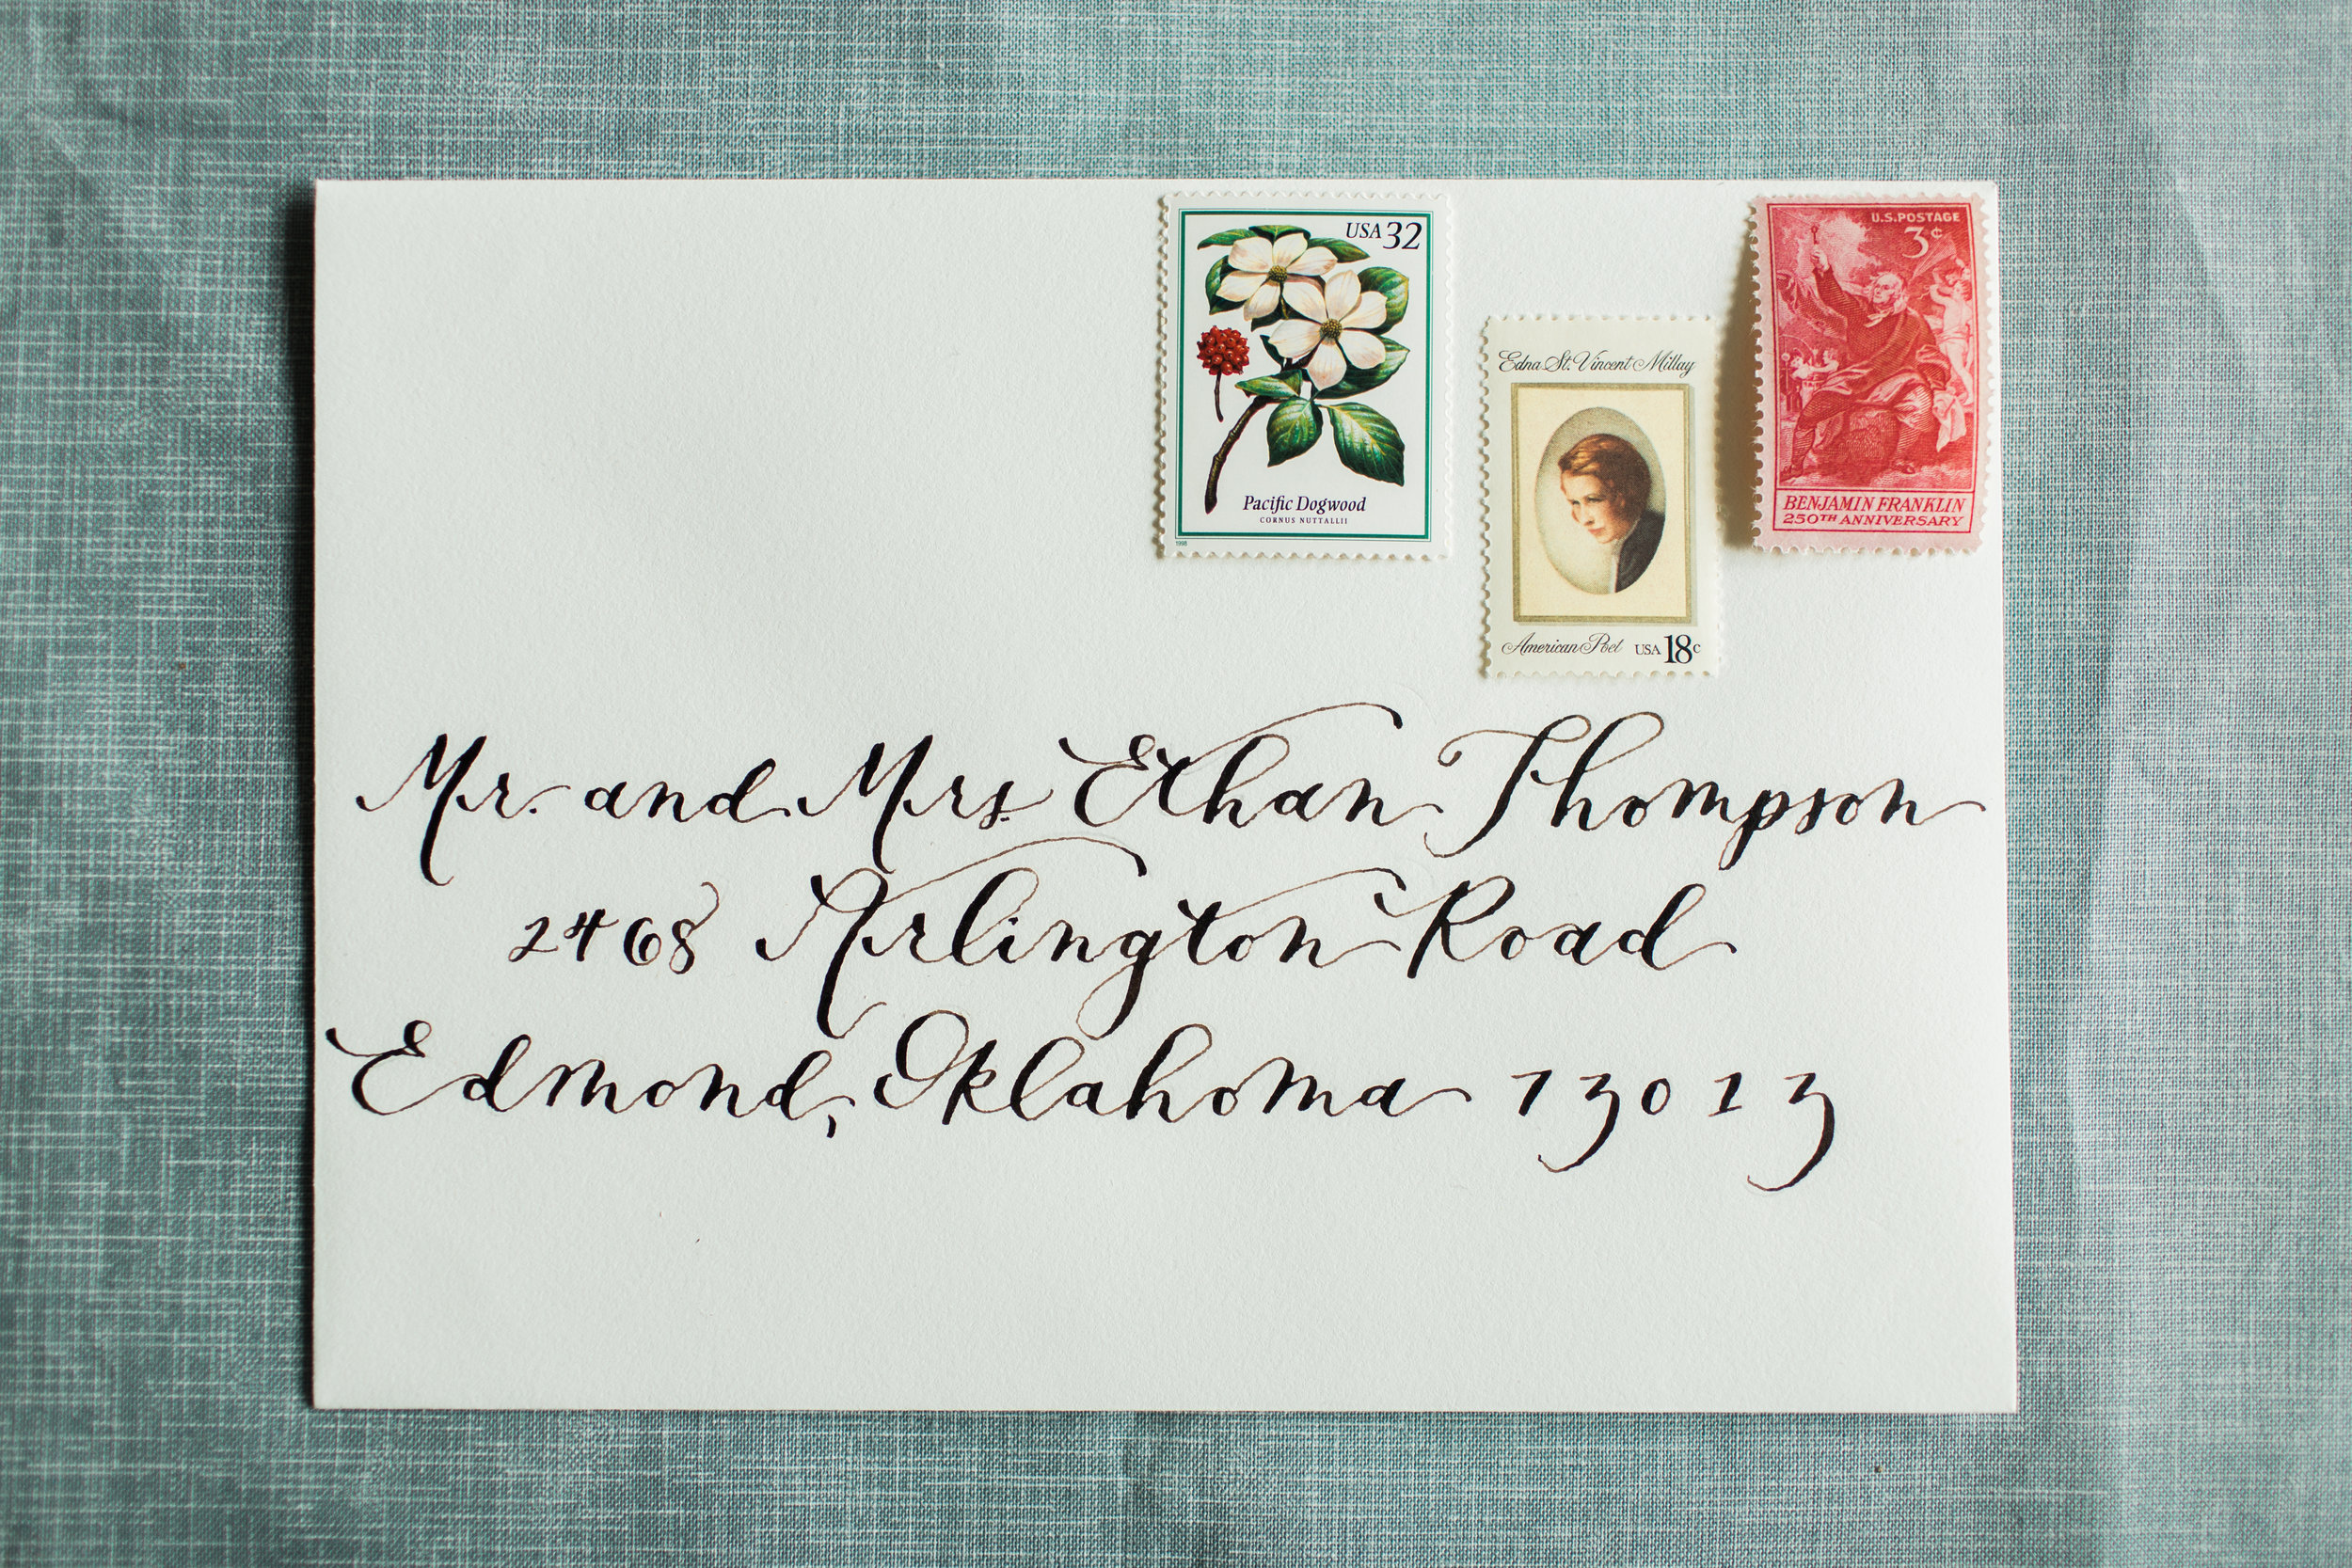 USA 32
Pacific Dogwood
CORNUS NUTTALLII
1998
Edna St. Vincent Millay
American Poet USA 18c
U.S. POSTAGE
3¢
BENJAMIN FRANKLIN
250TH ANNIVERSARY
Mr. and Mrs. Ethan Thompson
2468 Arlington Road
Edmond, Oklahoma 73013